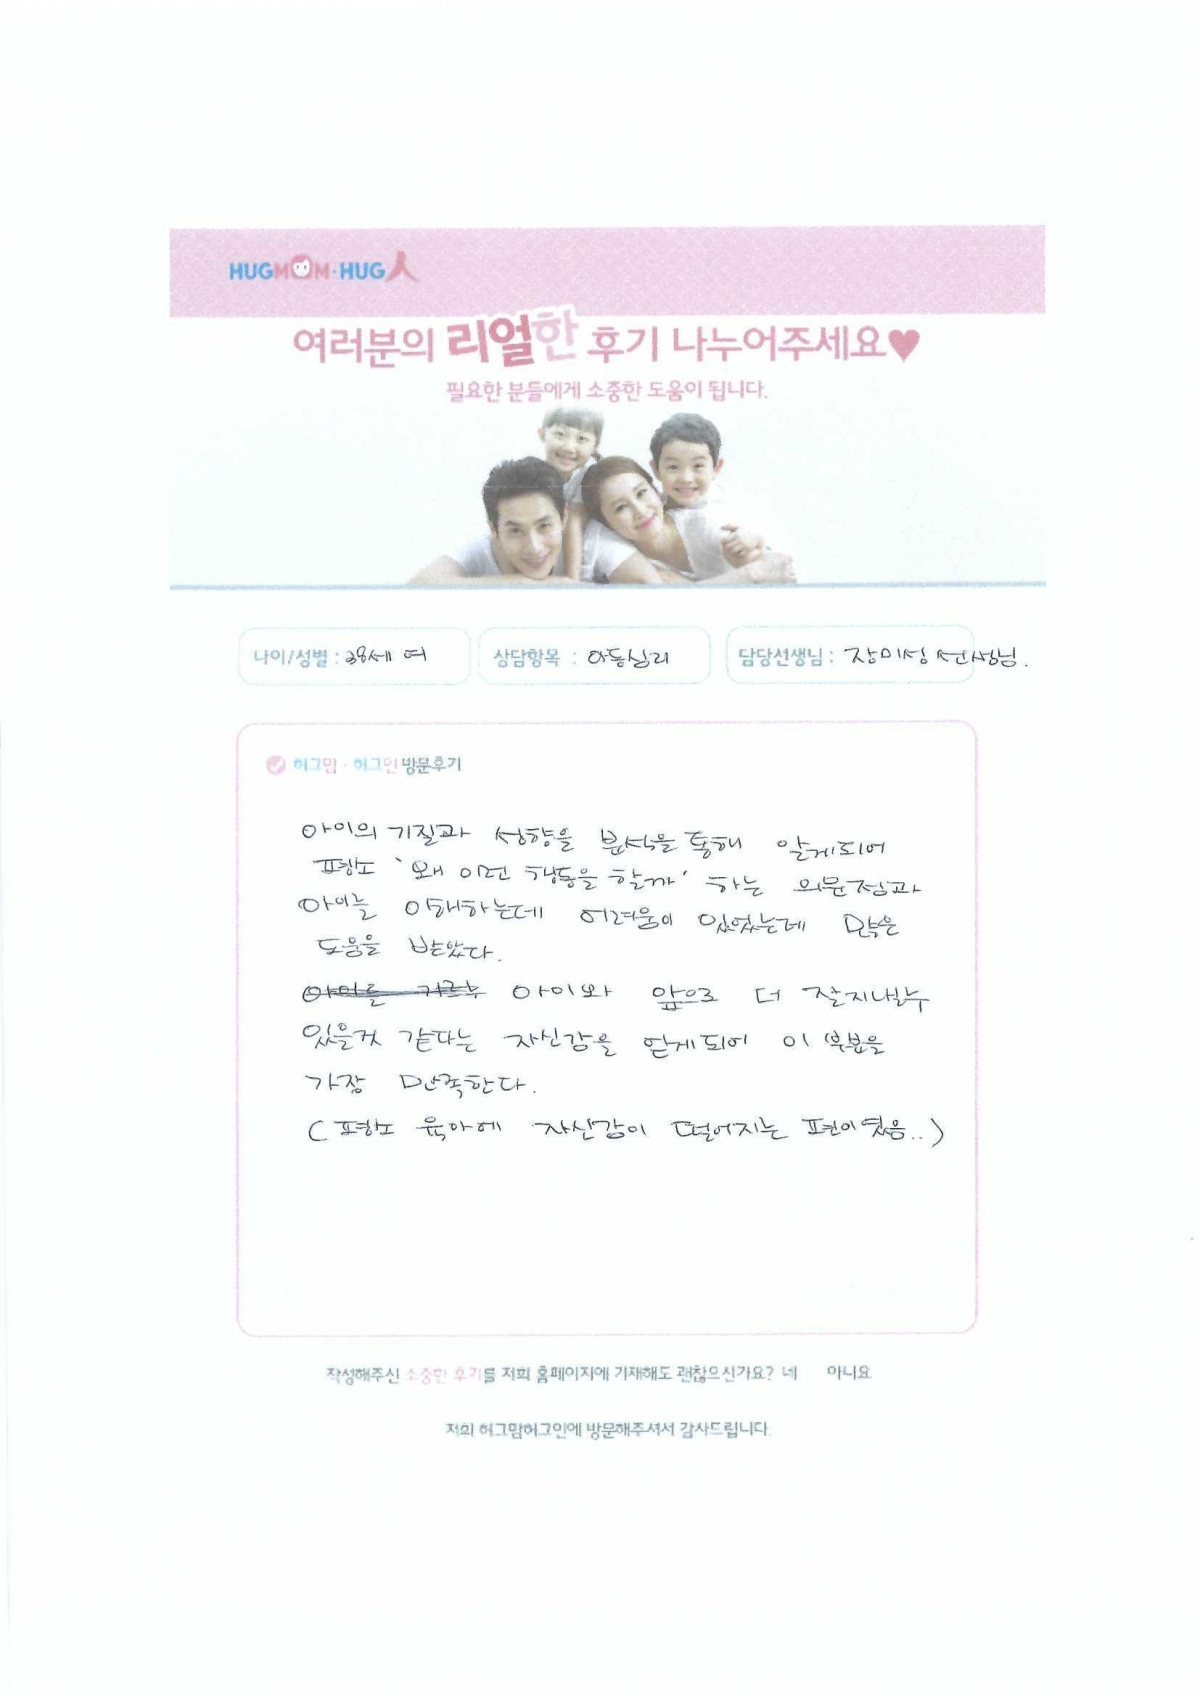 HUGMOM·HUG人
여러분의 리얼한 후기 나누어주세요♥
필요한 분들에게 소중한 도움이 됩니다.
나이/성별 : 38세 여 상담항목 : 아동심리 담당선생님 : 장미성 선생님.
허그맘·허그인 방문후기
아이의 기질과 성향을 분석을 통해 알게되어
평상소 '왜 이런 행동을 할까' 하는 의문점과
아이를 이해하는데 어려움이 있었는데 많은
도움을 받았다.
아이를 키르부 아이와 앞으로 더 잘지내볼수
있을것 같다는 자신감을 얻게되어 이 부분을
가장 만족한다.
( 평소 육아에 자신감이 떨어지는 편이였음..)
작성해주신 소중한 후기를 저희 홈페이지에 기재해도 괜찮으신가요? 네 아니요
저희 허그맘허그인에 방문해주셔서 감사드립니다.